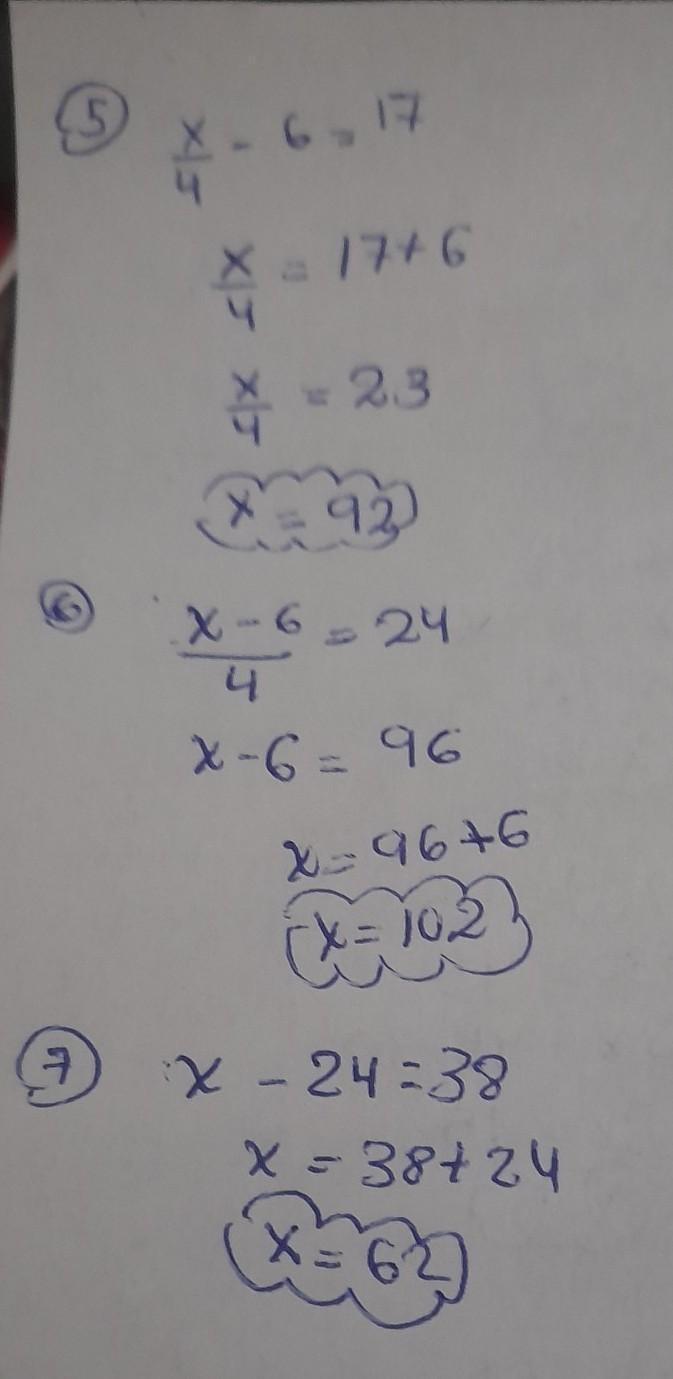 5 x/4 - 6 = 17
x/4 = 17+6
x/4 = 23
x = 92
6 x-6/4 = 24
x-6 = 96
x = 96+6
x = 102
7 x - 24 = 38
x = 38+24
x = 62